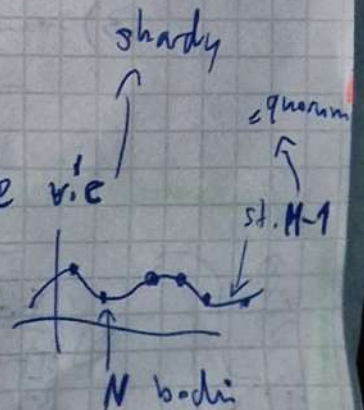 shardy
≤ quorum
e vie
st. M-1
N bodů